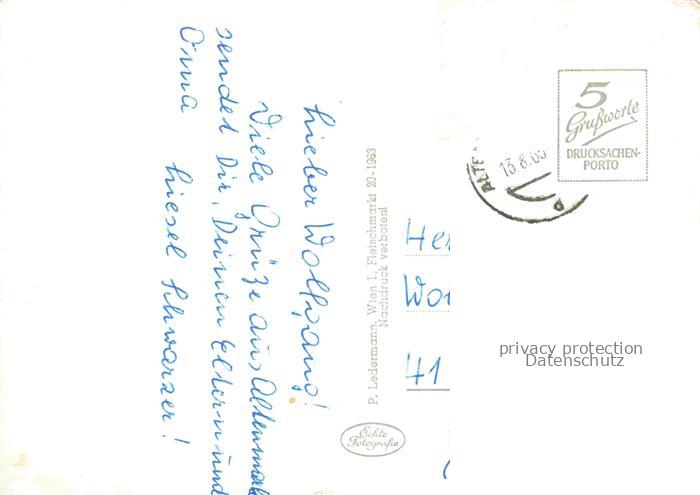 Lieber Wolfgang!
Viele Grüße aus Altenmarkt
sendet Dir, Deinen Eltern und
Oma Liesel Schwarzer!
P. Ledermann, Wien I., Fleischmarkt 20 - 1963
Nachdruck verboten!
Echte
Fotografie
5
Grußworte
DRUCKSACHEN-
PORTO
13.8.65
41
privacy protection
Datenschutz